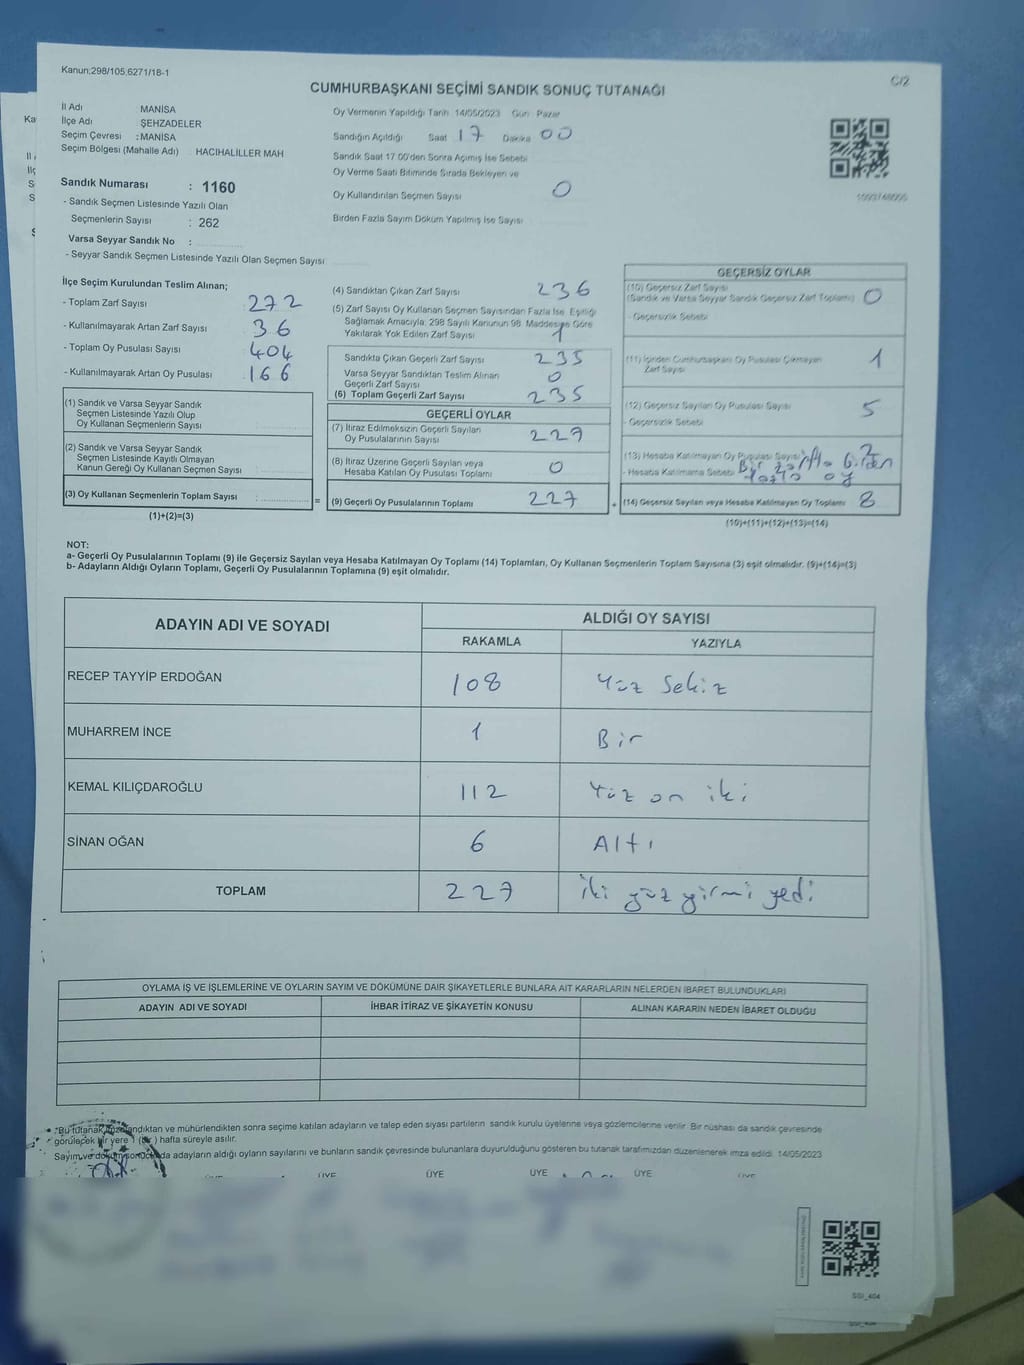 Kanun;298/105,6271/18-1
C/2
CUMHURBAŞKANI SEÇİMİ SANDIK SONUÇ TUTANAĞI
İl Adı : MANİSA
İlçe Adı : ŞEHZADELER
Seçim Çevresi : MANİSA
Seçim Bölgesi (Mahalle Adı) HACIHALİLLER MAH
Sandık Numarası : 1160
- Sandık Seçmen Listesinde Yazılı Olan
Seçmenlerin Sayısı : 262
Varsa Seyyar Sandık No :
- Seyyar Sandık Seçmen Listesinde Yazılı Olan Seçmen Sayısı
Oy Vermenin Yapıldığı Tarih 14/05/2023 Gün Pazar
Sandığın Açıldığı Saat 17 Dakika 00
Sandık Saat 17 00'den Sonra Açımış İse Sebebi
Oy Verme Saati Bitiminde Sırada Bekleyen ve
Oy Kullandırılan Seçmen Sayısı 0
Birden Fazla Sayım Döküm Yapılmış İse Sayısı
İlçe Seçim Kurulundan Teslim Alınan;
- Toplam Zarf Sayısı 272
- Kullanılmayarak Artan Zarf Sayısı 36
- Toplam Oy Pusulası Sayısı 404
- Kullanılmayarak Artan Oy Pusulası 166
(1) Sandık ve Varsa Seyyar Sandık
Seçmen Listesinde Yazılı Olup
Oy Kullanan Seçmenlerin Sayısı
(2) Sandık ve Varsa Seyyar Sandık
Seçmen Listesinde Kayıtlı Olmayan
Kanun Gereği Oy Kullanan Seçmen Sayısı
(3) Oy Kullanan Seçmenlerin Toplam Sayısı : =
(1)+(2)=(3)
(4) Sandıktan Çıkan Zarf Sayısı 236
(5) Zarf Sayısı Oy Kullanan Seçmen Sayısından Fazla İse, Eşitliği
Sağlamak Amacıyla, 298 Sayılı Kanunun 98. Maddesine Göre
Yakılarak Yok Edilen Zarf Sayısı 1
Sandıkta Çıkan Geçerli Zarf Sayısı 235
Varsa Seyyar Sandıktan Teslim Alınan
Geçerli Zarf Sayısı 0
(6) Toplam Geçerli Zarf Sayısı 235
GEÇERLİ OYLAR
(7) İtiraz Edilmeksizin Geçerli Sayılan
Oy Pusulalarının Sayısı 227
(8) İtiraz Üzerine Geçerli Sayılan veya
Hesaba Katılan Oy Pusulası Toplamı 0
(9) Geçerli Oy Pusulalarının Toplamı 227 +
GEÇERSİZ OYLAR
(10) Geçersiz Zarf Sayısı
(Sandık ve Varsa Seyyar Sandık Geçersiz Zarf Toplamı) 0
- Geçersizlik Sebebi
(11) İçinden Cumhurbaşkanı Oy Pusulası Çıkmayan
Zarf Sayısı 1
(12) Geçersiz Sayılan Oy Pusulası Sayısı 5
- Geçersizlik Sebebi
(13) Hesaba Katılmayan Oy Pusulası Sayısı 2
- Hesaba Katılmama Sebebi Bir zarfta birden
fazla oy
(14) Geçersiz Sayılan veya Hesaba Katılmayan Oy Toplamı 8
(10)+(11)+(12)+(13)=(14)
NOT:
a- Geçerli Oy Pusulalarının Toplamı (9) ile Geçersiz Sayılan veya Hesaba Katılmayan Oy Toplamı (14) Toplamları, Oy Kullanan Seçmenlerin Toplam Sayısına (3) eşit olmalıdır. (9)+(14)=(3)
b- Adayların Aldığı Oyların Toplamı, Geçerli Oy Pusulalarının Toplamına (9) eşit olmalıdır.
ADAYIN ADI VE SOYADI
ALDIĞI OY SAYISI
RAKAMLA YAZIYLA
RECEP TAYYİP ERDOĞAN 108 Yüz Sekiz
MUHARREM İNCE 1 Bir
KEMAL KILIÇDAROĞLU 112 Yüz on iki
SİNAN OĞAN 6 Altı
TOPLAM 227 İki yüz yirmi yedi
OYLAMA İŞ VE İŞLEMLERİNE VE OYLARIN SAYIM VE DÖKÜMÜNE DAİR ŞİKAYETLERLE BUNLARA AİT KARARLARIN NELERDEN İBARET BULUNDUKLARI
ADAYIN ADI VE SOYADI İHBAR İTİRAZ VE ŞİKAYETİN KONUSU ALINAN KARARIN NEDEN İBARET OLDUĞU
"Bu tutanak imzalandıktan ve mühürlendikten sonra seçime katılan adayların ve talep eden siyasi partilerin sandık kurulu üyelerine veya gözlemcilerine verilir. Bir nüshası da sandık çevresinde
görülecek bir yere 1 (bir) hafta süreyle asılır.
Sayım ve döküm sonucunda adayların aldığı oyların sayılarını ve bunların sandık çevresinde bulunanlara duyurulduğunu gösteren bu tutanak tarafımızdan düzenlenerek imza edildi. 14/05/2023
ÜYE ÜYE ÜYE ÜYE ÜYE ÜYE
SSI_404